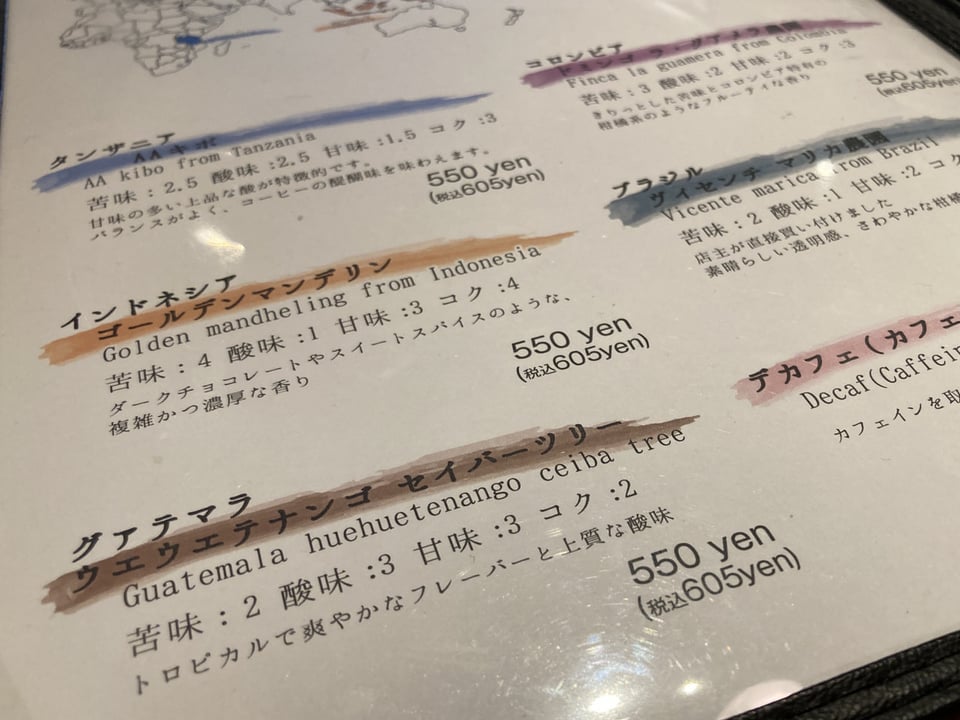 タンザニア
AA キボ
AA kibo from Tanzania
苦味 : 2.5 酸味 :2.5 甘味 :1.5 コク :3
甘味の多い上品な酸が特徴的です。
バランスがよく、コーヒーの醍醐味を味わえます。
550 yen
(税込605yen)
インドネシア
ゴールデンマンデリン
Golden mandheling from Indonesia
苦味 : 4 酸味 :1 甘味 :3 コク :4
ダークチョコレートやスイートスパイスのような、
複雑かつ濃厚な香り
550 yen
(税込605yen)
グァテマラ
ウエウエテナンゴ セイバーツリー
Guatemala huehuetenango ceiba tree
苦味 : 2 酸味 :3 甘味 :3 コク :2
トロピカルで爽やかなフレーバーと上質な酸味
550 yen
(税込605yen)
コロンビア
ドミンゴ ラ・グアメラ農園
Finca la guamera from Colombia
苦味 :3 酸味 :2 甘味 :2 コク :3
きりっとした苦味とコロンビア特有の
柑橘系のようなフルーティな香り
550 yen
(税込605yen
ブラジル
ヴィセンテ マリカ農園
Vicente marica from Brazil
苦味 : 2 酸味 :1 甘味 :2 コク
店主が直接買い付けました
素晴らしい透明感、さわやかな柑橘
デカフェ(カフェ
Decaf(Caffein
カフェインを取